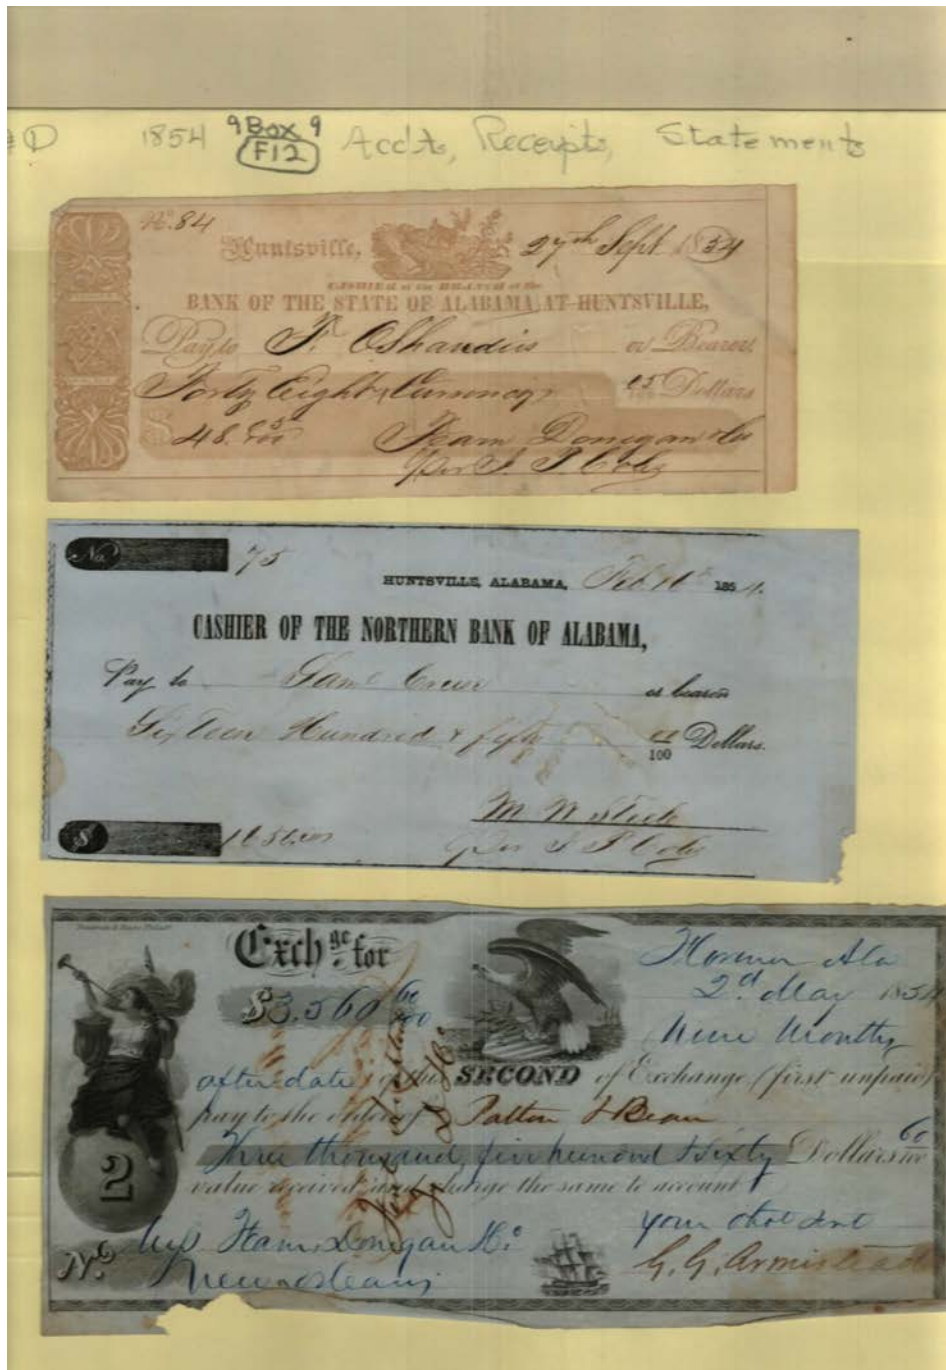 1854 9 Box 9 Acc'ts, Receipts, Statements
F12
No. 84
Huntsville, 27th Sept 1854
CASHIER of the BRANCH of the
BANK OF THE STATE OF ALABAMA AT HUNTSVILLE,
Pay to or Bearer
Forty Eight Currency Dollars
$ 48.
Fearn Donegan & Co
Per
No. 75
HUNTSVILLE, ALABAMA, Feb 1854.
CASHIER OF THE NORTHERN BANK OF ALABAMA,
Pay to Saml Cruse or bearer
Sixteen Hundred & fifty 00/100 Dollars.
M W Steele
$ 1650.00
Per
Exchge. for
Ala
$3.560 60/100
2d May 1854
Nine Months
after date of this SECOND of Exchange (first unpaid)
pay to the order of Patton & Bean
Three thousand five hundred & Sixty Dollars 60/100
value received and charge the same to account
2
your obt svt
Fearn Donegan & Co
G. G. Armistead
No. New Orleans